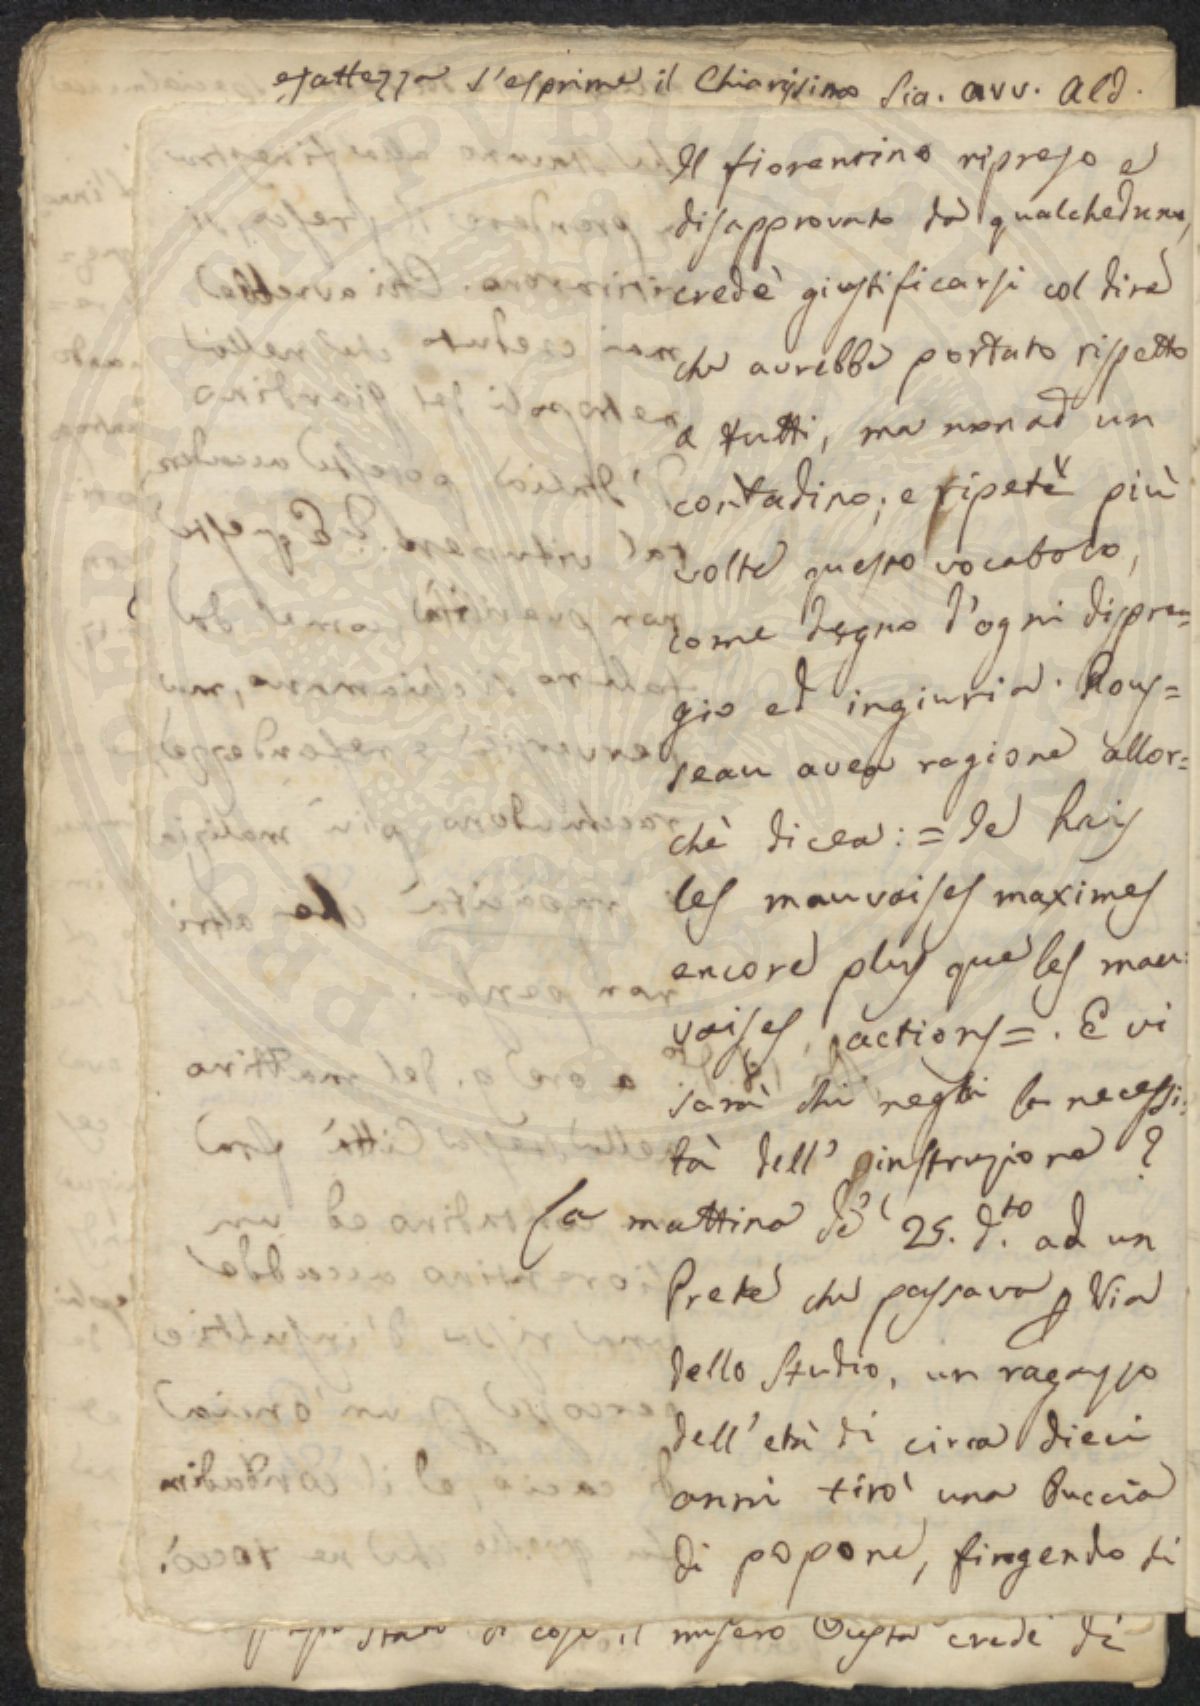 esattezza s'esprime il Chiarisimo Sig. avv. Ald.
Il fiorentino ripreso e
disapprovato da qualcheduno,
credè giustificarsi col dire
che avrebbe portato rispetto
a tutti, ma non ad un
contadino; e ripetè più
volte questo vocabolo,
come degno d'ogni dispre=
gio ed ingiuria. Rous=
seau avea ragione allor=
chè dicea: = Je haïs
les mauvaises maximes
encore plus que les mau=
vaises actions =. E vi
sarà chi neghi la necessi=
tà dell' instruzione?
La mattina de' 25. d.to ad un
Prete che passava p Via
dello Studio, un ragazzo
dell'età di circa dieci
anni tirò una Buccia
di popone, fingendo di
stato di cose il misero Giusto crede di